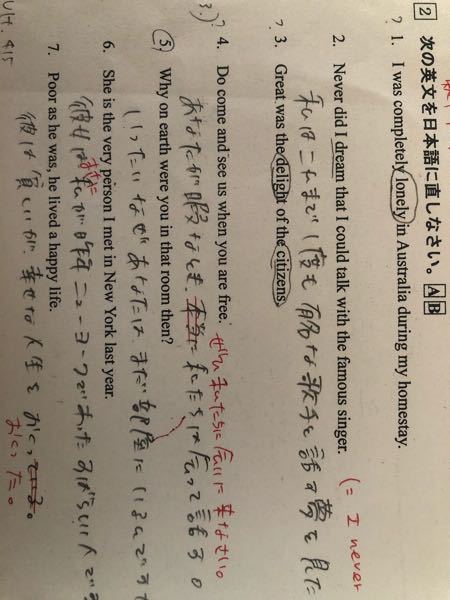 2 次の英文を日本語に直しなさい。 A B
? 1. I was completely lonely in Australia during my homestay.
2. Never did I dream that I could talk with the famous singer.
(= I never
私はこれまで1度も有名な歌手と話す夢を見た
? 3. Great was the delight of the citizens.
? 4. Do come and see us when you are free.
ぜひ私たちに会いに来なさい。
あなたが暇なとき、本当に私たちは会って話する
5. Why on earth were you in that room then?
いったいなぜあなたはまだ部屋にいるんです
6. She is the very person I met in New York last year.
彼女は私が昨年ニューヨークであったすばらしい人です
7. Poor as he was, he lived a happy life.
彼は貧しいが、幸せな人生をおくっている。
おくった。